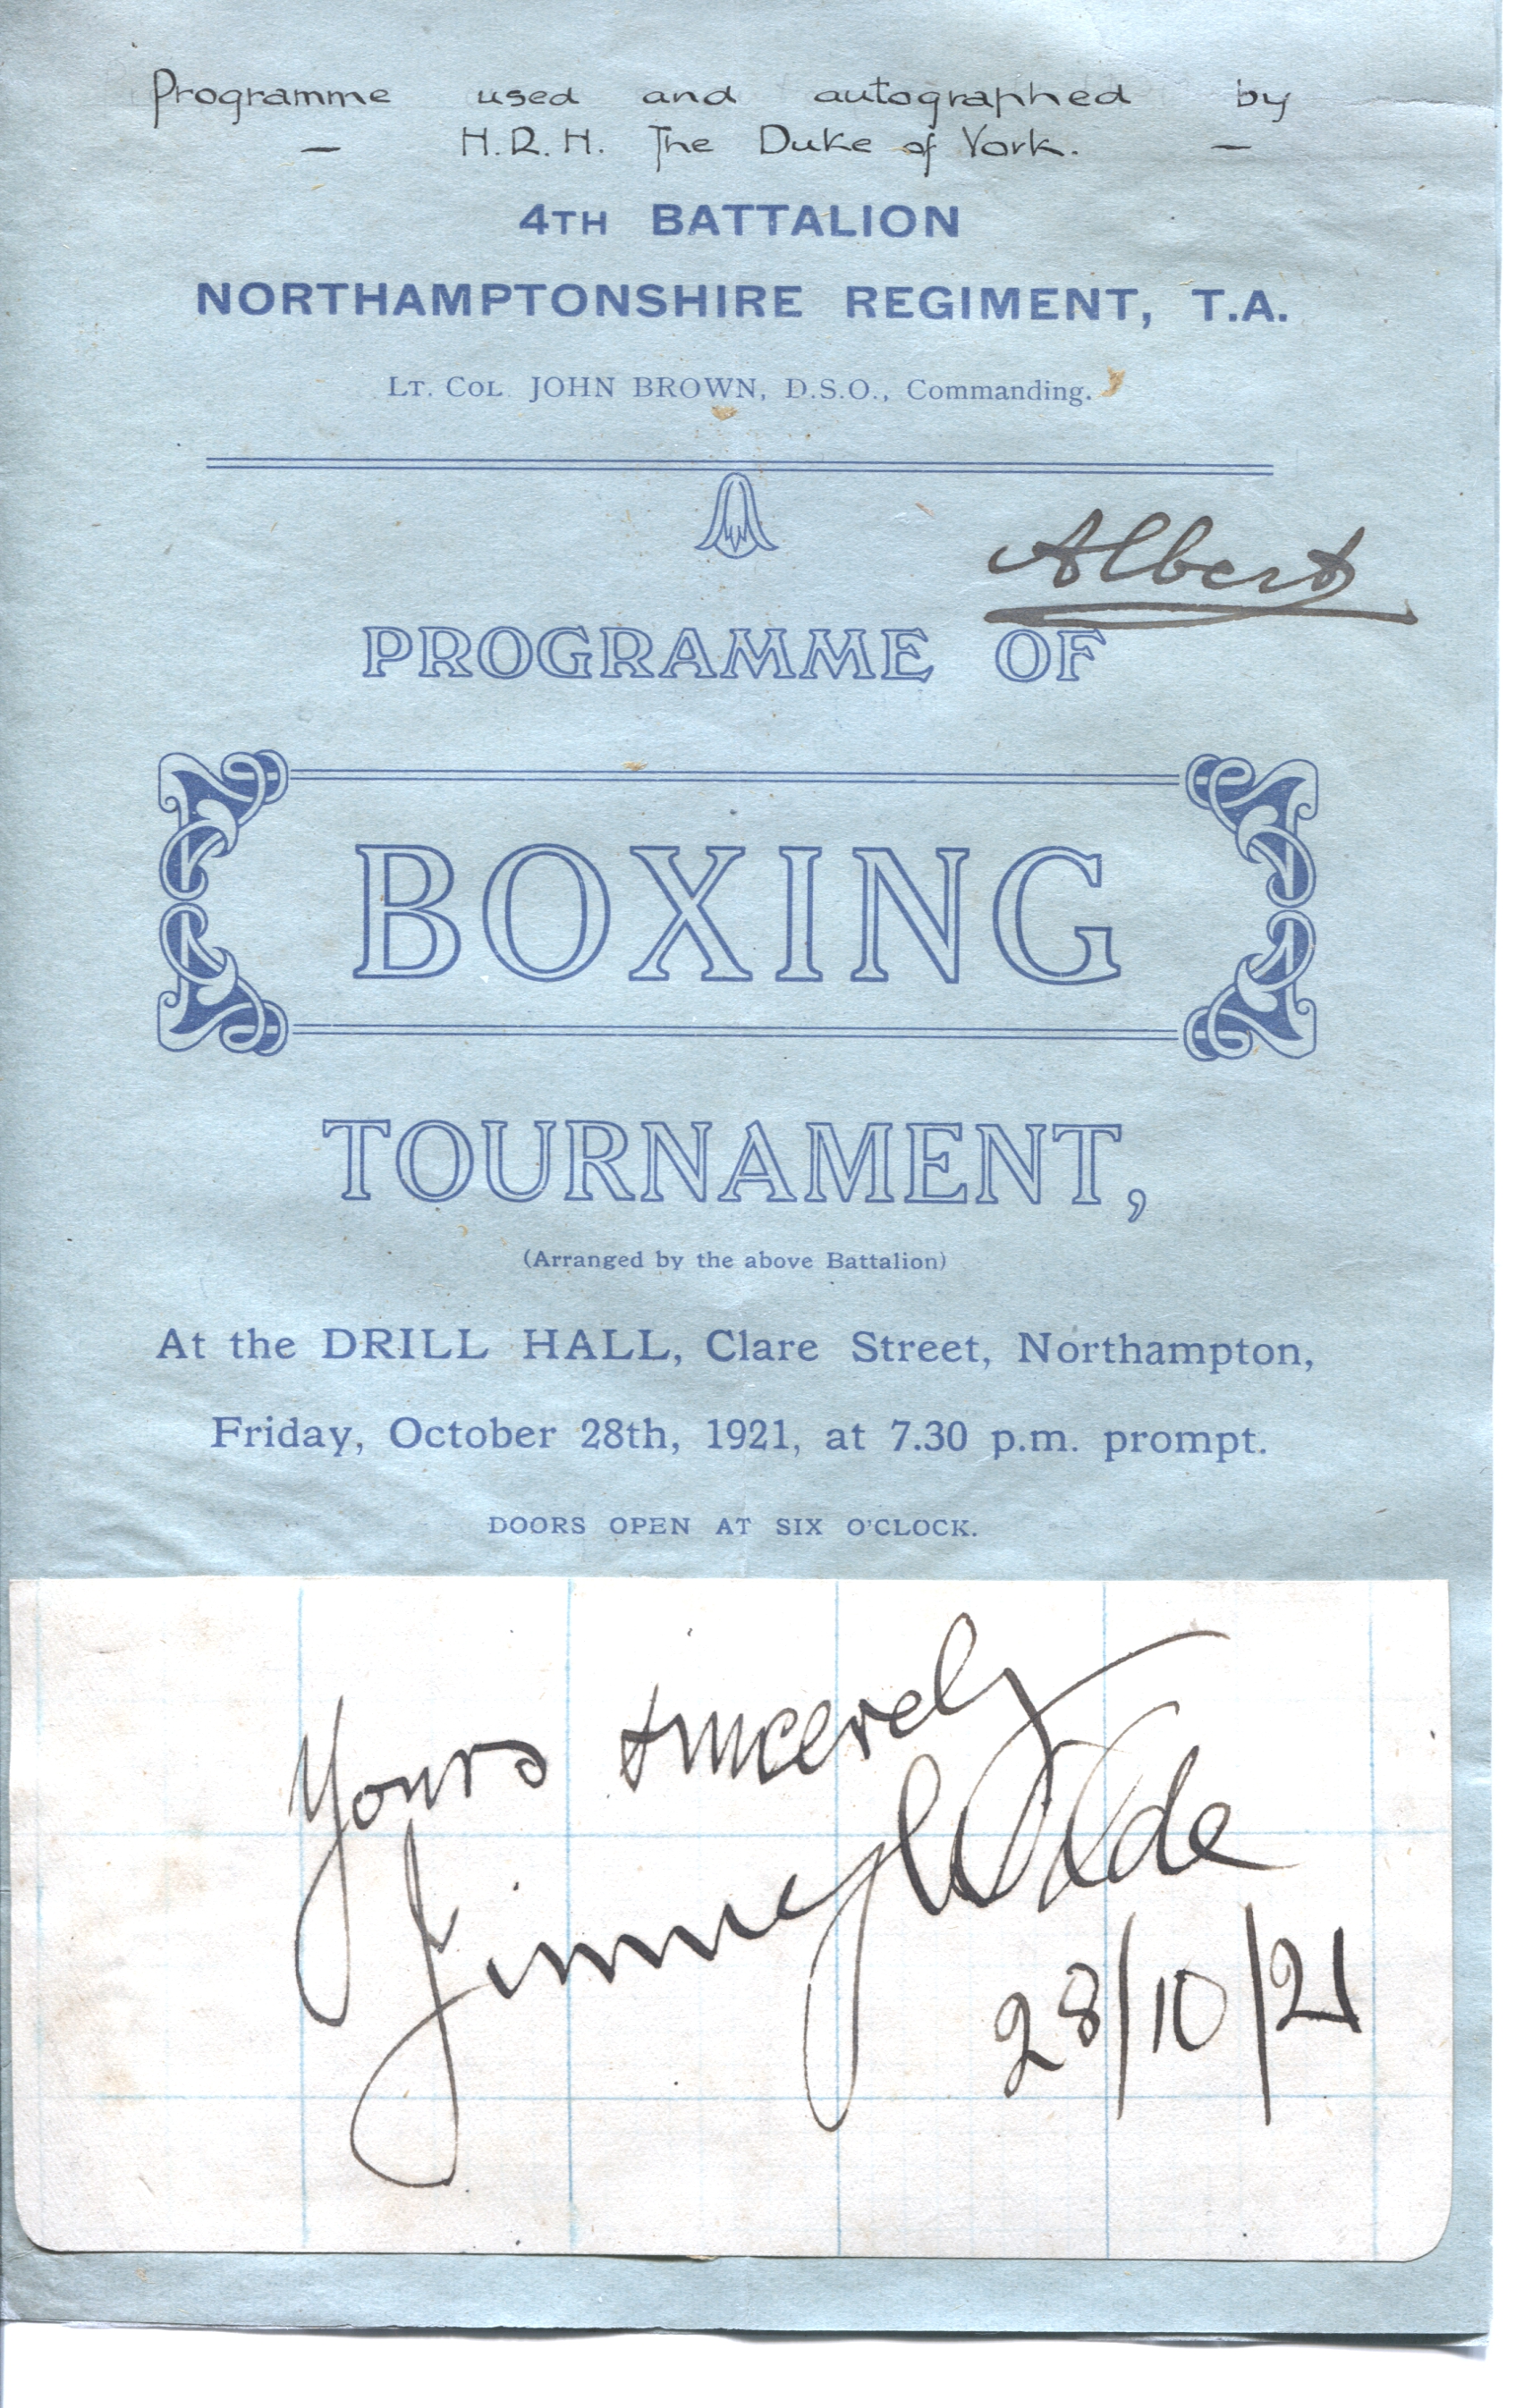 Programme used and autographed by
— H.R.H. The Duke of York. —
4TH BATTALION
NORTHAMPTONSHIRE REGIMENT, T.A.
LT. COL. JOHN BROWN, D.S.O., Commanding.
Albert
PROGRAMME OF
BOXING
TOURNAMENT,
(Arranged by the above Battalion)
At the DRILL HALL, Clare Street, Northampton,
Friday, October 28th, 1921, at 7.30 p.m. prompt.
DOORS OPEN AT SIX O'CLOCK.
Yours sincerely
Jimmy Wilde
28/10/21